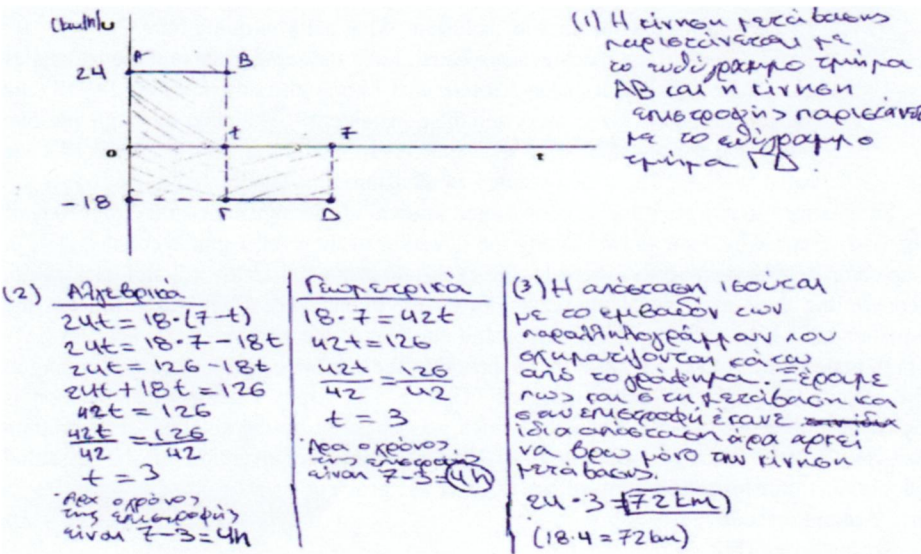 U(km/h)
Α Β
24
0 t 7 t
-18
Γ Δ
(1) Η κίνηση μετάβασης
παριστάνεται με
το ευθύγραμμο τμήμα
ΑΒ και η κίνηση
επιστροφής παριστάνετ
με το ευθύγραμμο
τμήμα ΓΔ
(2) Αλγεβρικά
24t = 18·(7-t)
24t = 18·7-18t
24t = 126-18t
24t+18t = 126
42t = 126
42t/42 = 126/42
t = 3
Άρα ο χρόνος
της επιστροφής
είναι 7-3=4h
Γεωμετρικά
18·7 = 42t
42t = 126
42t/42 = 126/42
t = 3
Άρα ο χρόνος
της επιστροφής
είναι 7-3=4h
(3) Η απόσταση ισούται
με το εμβαδόν των
παραλληλογράμμων που
σχηματίζονται κάτω
από το γράφημα. Ξέραμε
πως και στη μετάβαση και
στην επιστροφή έκανε την ίδια
ίδια απόσταση άρα αρκεί
να βρω μόνο την κίνηση
μετάβασης.
24·3=72km
(18·4=72km)